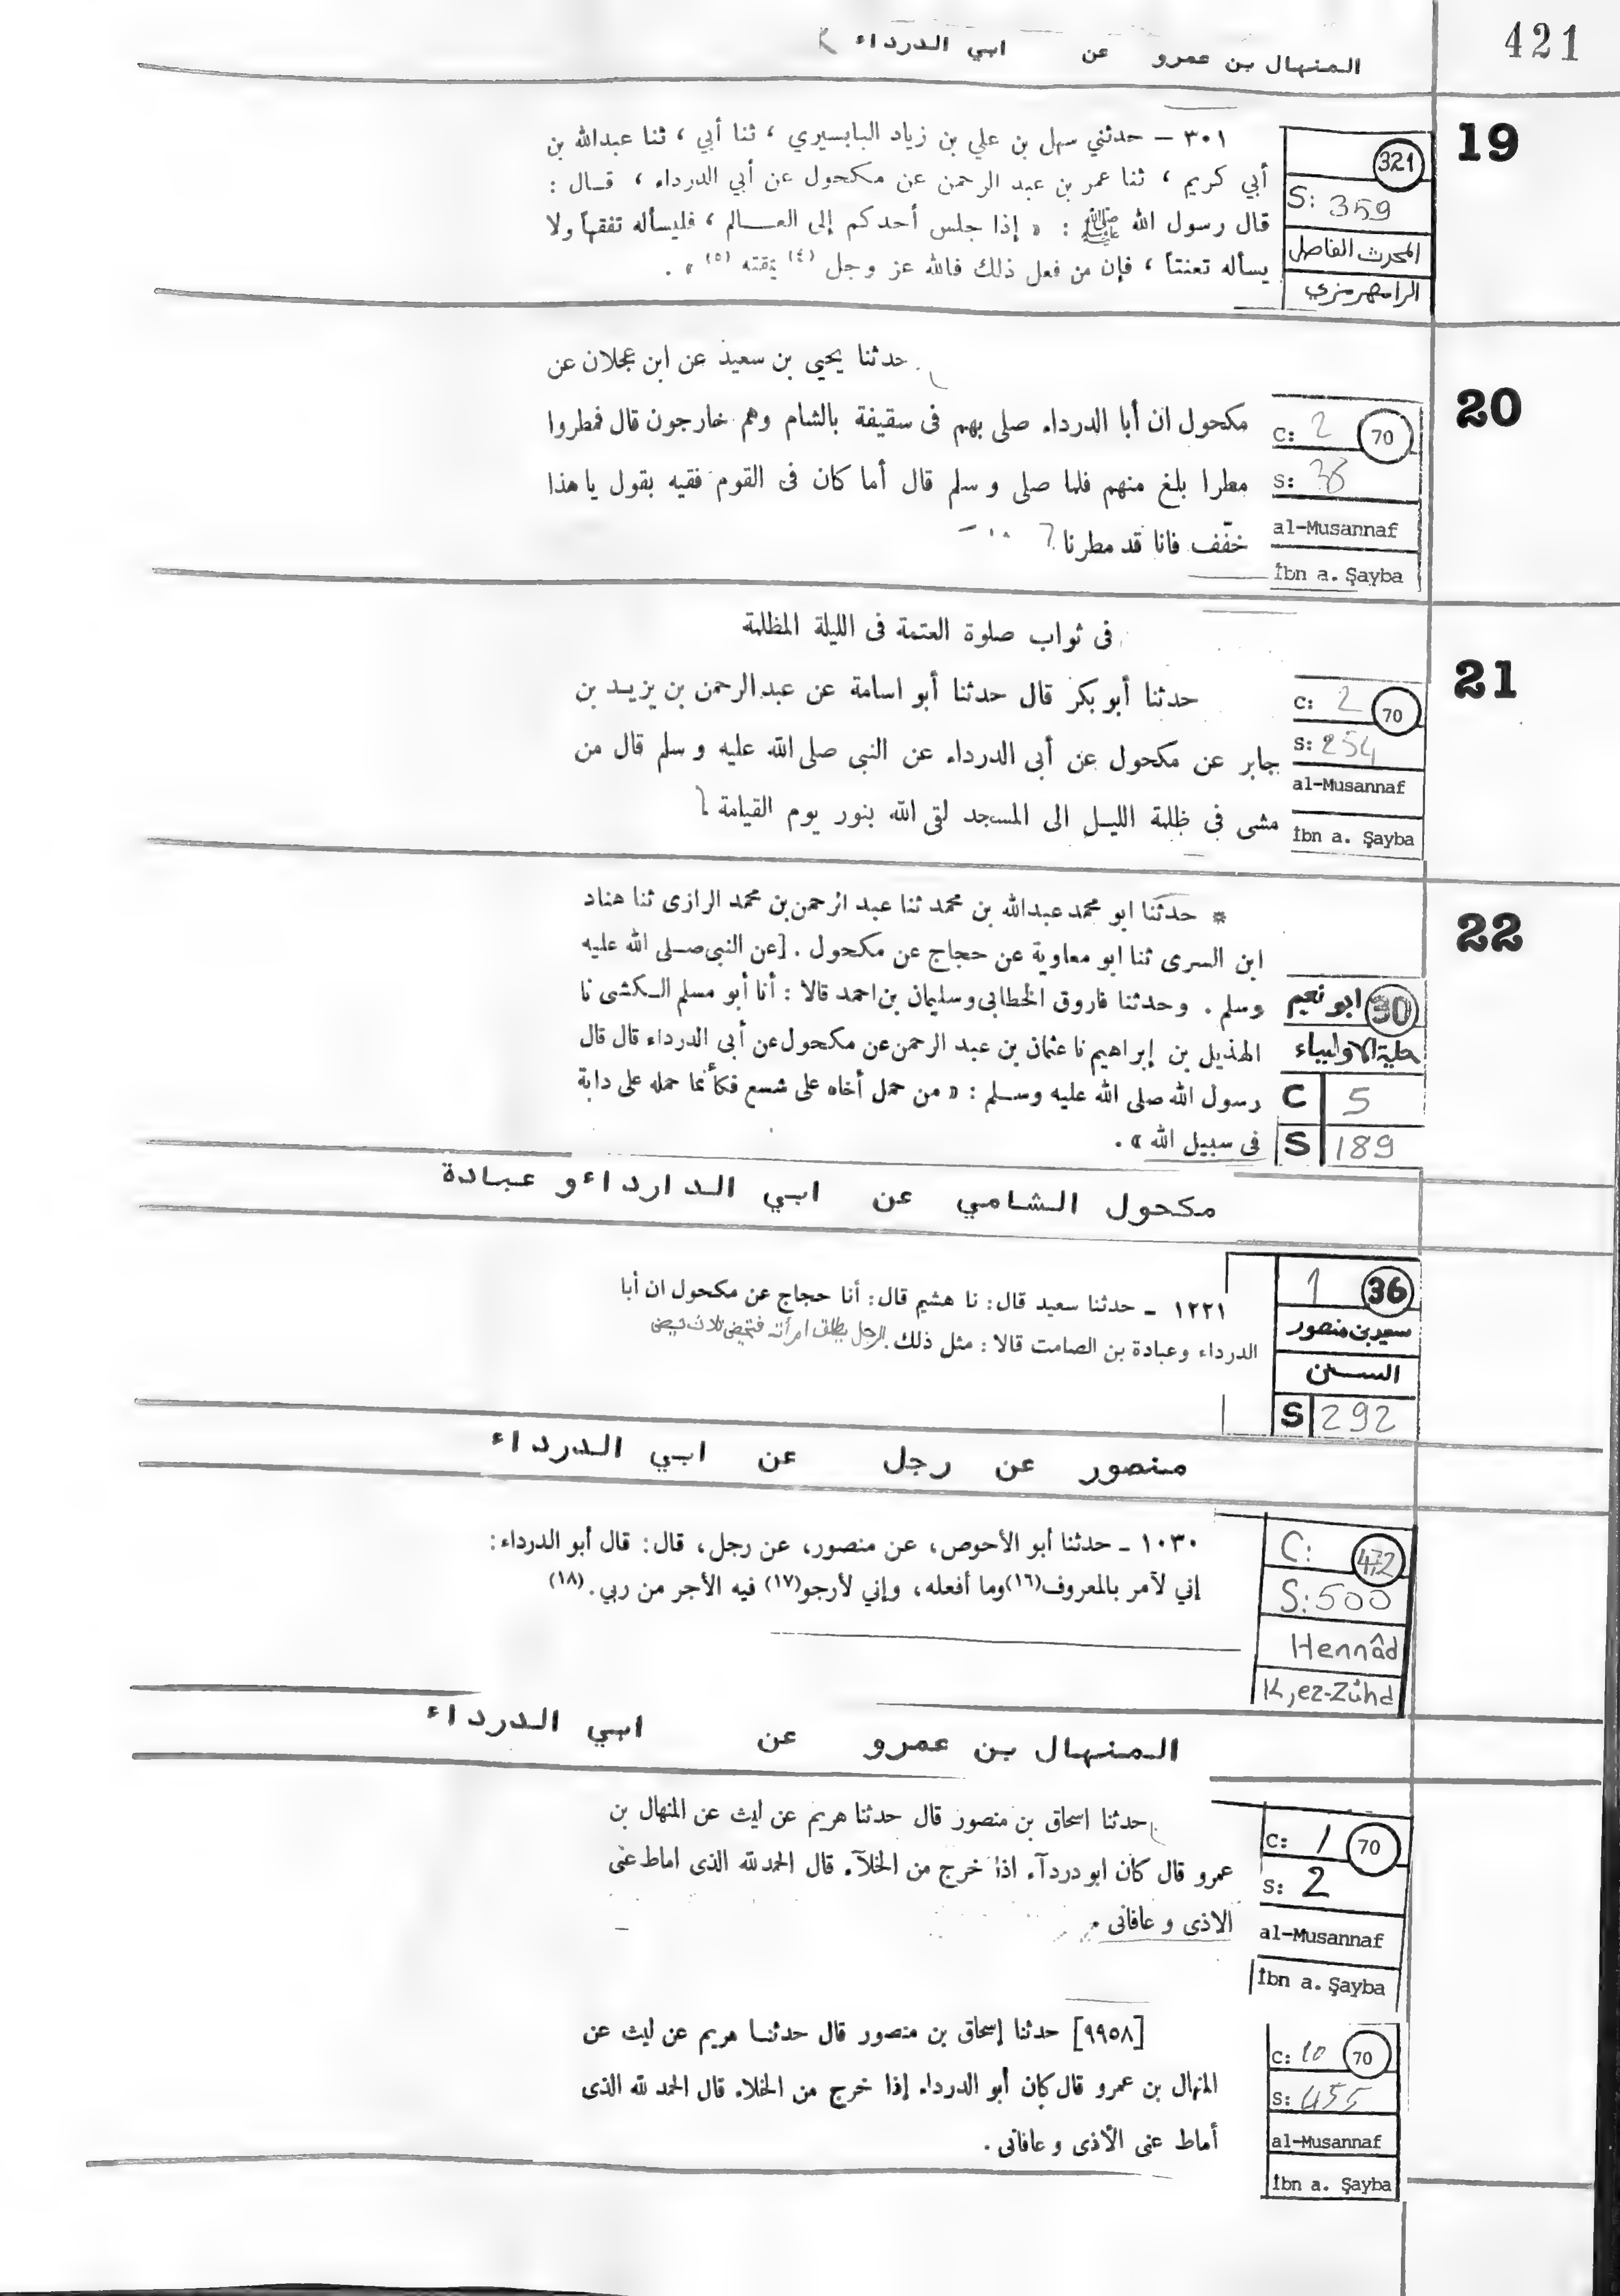 421
المنهال بن عمرو عن ابي الدرداء
19
321
S: 359
المحدث الفاصل
الرامهرمزي
٣٠١ – حدثني سهل بن علي بن زياد البابسيري ، ثنا أبي ، ثنا عبدالله بن
أبي كريم ، ثنا عمر بن عبد الرحمن عن مكحول عن أبي الدرداء ، قـال :
قال رسول الله ﷺ : « إذا جلس أحدكم إلى العـــالم ، فليسأله تفقهاً ولا
يسأله تعنتاً ، فإن من فعل ذلك فالله عز وجل (٤) يمقته (٥) » .
20
C: 2 70
S: 38
al-Musannaf
İbn a. Şayba
حدثنا يحيى بن سعيد عن ابن عجلان عن
مكحول ان أبا الدرداء صلى بهم فى سقيفة بالشام وهم خارجون قال فمطروا
مطرا بلغ منهم فلما صلى و سلم قال أما كان فى القوم فقيه بقول يا هذا
خفّف فانا قد مطرنا
21
C: 2 70
S: 254
al-Musannaf
İbn a. Şayba
فى ثواب صلوة العتمة فى الليلة المظلمة
حدثنا أبو بكر قال حدثنا أبو اسامة عن عبد الرحمن بن يزيـد بن
جابر عن مكحول عن أبى الدرداء عن النبى صلى الله عليه و سلم قال من
مشى فى ظلمة الليـل الى المسجد لقى الله بنور يوم القيامة
22
ابو نعيم 30
حلية الاولياء
C 5
S 189
* حدثنا ابو محمد عبدالله بن محمد ثنا عبد الرحمن بن محمد الرازى ثنا هناد
ابن السرى ثنا ابو معاوية عن حجاج عن مكحول . [عن النبى صـلى الله عليه
وسلم . وحدثنا فاروق الخطابى وسليمان بن احمد قالا : أنا أبو مسلم الـكشى نا
الهذيل بن إبراهيم نا عثمان بن عبد الرحمن عن مكحول عن أبى الدرداء قال قال
رسول الله صلى الله عليه وسـلم : « من حمل أخاه على شسع فكأنما حمله على دابة
فى سبيل الله » .
مكحول الشامي عن ابي الدارداء و عبادة
1 36
سعيد بن منصور
السنن
S 292
١٢٢١ ـ حدثنا سعيد قال: نا هشيم قال: أنا حجاج عن مكحول ان أبا
الدرداء وعبادة بن الصامت قالا : مثل ذلك. الرجل يطلق امرأته فتحيض ثلاث حيض
منصور عن رجل عن ابي الدرداء
C: 472
S: 500
Hennâd
K, ez-Zühd
١٠٣٠ ـ حدثنا أبو الأحوص، عن منصور، عن رجل، قال: قال أبو الدرداء:
إني لآمر بالمعروف(١٦) وما أفعله، وإني لأرجو(١٧) فيه الأجر من ربي. (١٨)
المنهال بن عمرو عن ابي الدرداء
C: 1 70
S: 2
al-Musannaf
İbn a. Şayba
حدثنا اسحاق بن منصور قال حدثنا هريم عن ليث عن المنهال بن
عمرو قال كان ابو درداء اذا خرج من الخلاء قال الحمد لله الذى اماط عنى
الاذى و عافانى .
C: 10 70
S: 455
al-Musannaf
İbn a. Şayba
[٩٩٥٨] حدثنا إسحاق بن منصور قال حدثنـا هريم عن ليث عن
المنهال بن عمرو قال كان أبو الدرداء إذا خرج من الخلاء قال الحمد لله الذى
أماط عنى الأذى و عافانى .